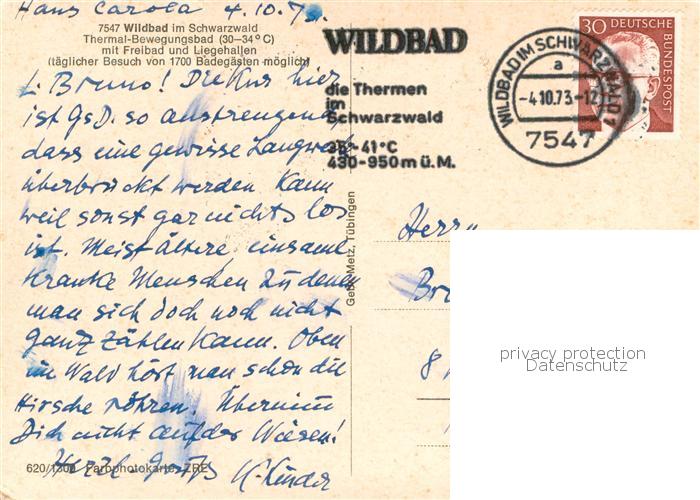 Haus Carola 4.10.73
7547 Wildbad im Schwarzwald
Thermal-Bewegungsbad (30—34°C)
mit Freibad und Liegehallen
(täglicher Besuch von 1700 Badegästen möglich)
L. Bruno! Die Kur hier
ist GsD. so anstrengend,
dass eine gewisse Langweile
überbrückt werden kann
weil sonst gar nichts los
ist. Meist ältere, einsame
kranke Menschen zu denen
man sich doch noch nicht
ganz zählen kann. Oben
im Wald hört man schon die
Hirsche röhren. Übernimm
Dich nicht auf der Wiesen!
Herzl. Grüße
620/1300 Farbphotokarte ZRE
WILDBAD
die Thermen
im
Schwarzwald
35-41°C
430-950m ü.M.
WILDBAD IM SCHWARZWALD 1
a
-4.10.73-12
7547
30 DEUTSCHE
BUNDESPOST
Gebr. Metz, Tübingen
Herrn
8
privacy protection
Datenschutz